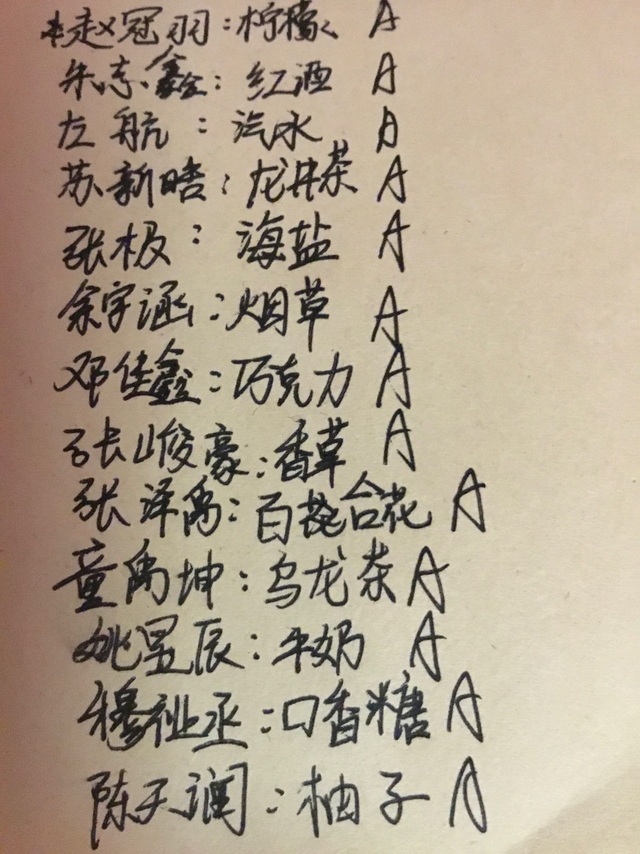 赵冠羽：柠檬 A
朱志鑫：红酒 A
左航：汽水 A
苏新皓：龙井茶 A
张极：海盐 A
余宇涵：烟草 A
邓佳鑫：巧克力 A
张峻豪：香草 A
张泽禹：百合花 A
童禹坤：乌龙茶 A
姚昱辰：牛奶 A
穆祉丞：口香糖 A
陈天润：柚子 A